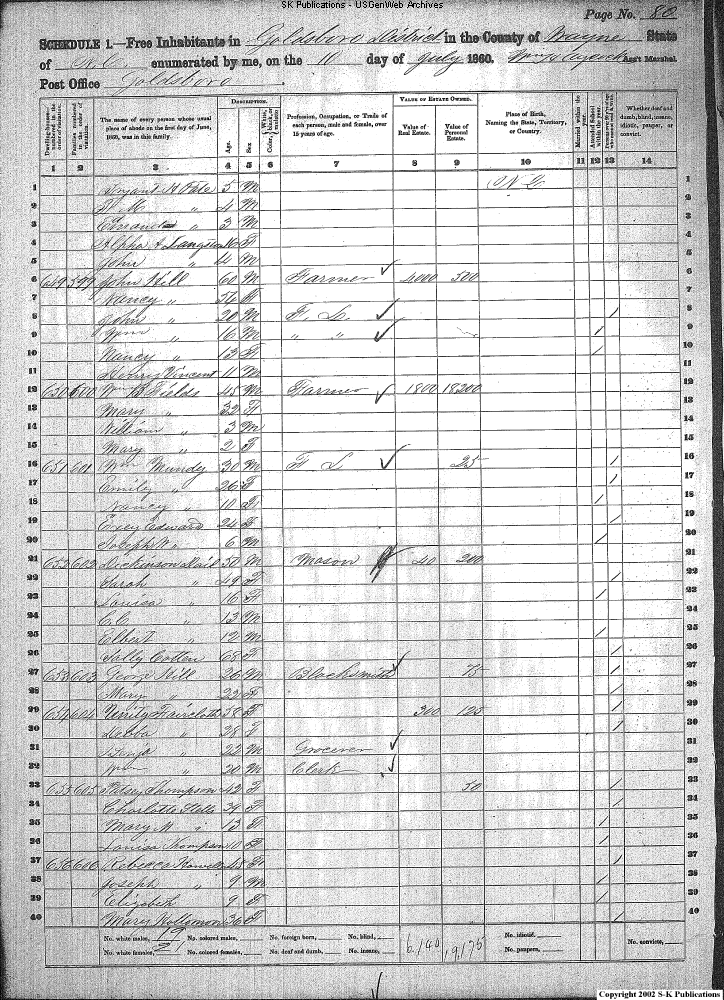 SK Publications - USGenWeb Archives
Page No. 80
SCHEDULE 1.—Free Inhabitants in Goldsboro District in the County of Wayne State
of N.C. enumerated by me, on the 10 day of July 1860. Ass't Marshal.
Post Office Goldsboro
Dwelling-houses numbered in the order of visitation.
Families numbered in the order of visitation.
The name of every person whose usual place of abode on the first day of June, 1860, was in this family.
DESCRIPTION.
Age.
Sex
Color, White, black, or mulatto
Profession, Occupation, or Trade of each person, male and female, over 15 years of age.
VALUE OF ESTATE OWNED.
Value of Real Estate.
Value of Personal Estate.
Place of Birth, Naming the State, Territory, or Country.
Married within the year.
Attended School within the year.
Whether deaf and dumb, blind, insane, idiotic, pauper, or convict.
1 2 3 4 5 6 7 8 9 10 11 12 13 14
1 5 M N C 1
2 " 4 M 2
3 " 3 M 3
4 Alpha A Langston F 4
5 John " 4 M 5
6 649 599 John Hill 60 M Farmer 4000 500 6
7 Nancy " 56 F 7
8 John " 20 M F. L. 8
9 Wm " 16 M " " 9
10 Nancy " 13 F 10
11 Henry Vincent 11 M 11
12 650 600 Wm B Fields 45 M Farmer 1800 18200 12
13 Mary " 32 F 13
14 William " 3 M 14
15 Mary " 2 F 15
16 651 601 Wm Mundy 30 M F L 25 16
17 Emily " 26 F 17
18 Nancy " 10 F 18
19 Edward 24 F 19
20 Joseph W " 6 M 20
21 652 602 Dickinson 50 M Mason 40 200 21
22 Sarah " 49 F 22
23 Louisa " 16 F 23
24 C.C. " 13 M 24
25 Elbert " 12 M 25
26 Sally Cotten 68 F 26
27 653 603 George Hill 26 M Blacksmith 75 27
28 Mary " 22 F 28
29 654 604 Unity Faircloth 58 F 300 125 29
30 " 28 F 30
31 " 22 M Grocerer 31
32 Wm " 20 M Clerk 32
33 655 605 Thompson 42 F 50 33
34 Charlotte 34 F 34
35 Mary M " 13 F 35
36 Louisa Thompson F 36
37 656 606 Rebecca Howell 45 F 37
38 Joseph " 9 M 38
39 Elizabeth 9 F 39
40 Mary Hollomon 36 F 40
No. white males, 19 No. colored males, No. foreign born, No. blind, 6,140 19,175 No. idiotic, No. convicts,
No. white females, 21 No. colored females, No. deaf and dumb, No. insane, No. paupers,
Copyright 2002 S-K Publications